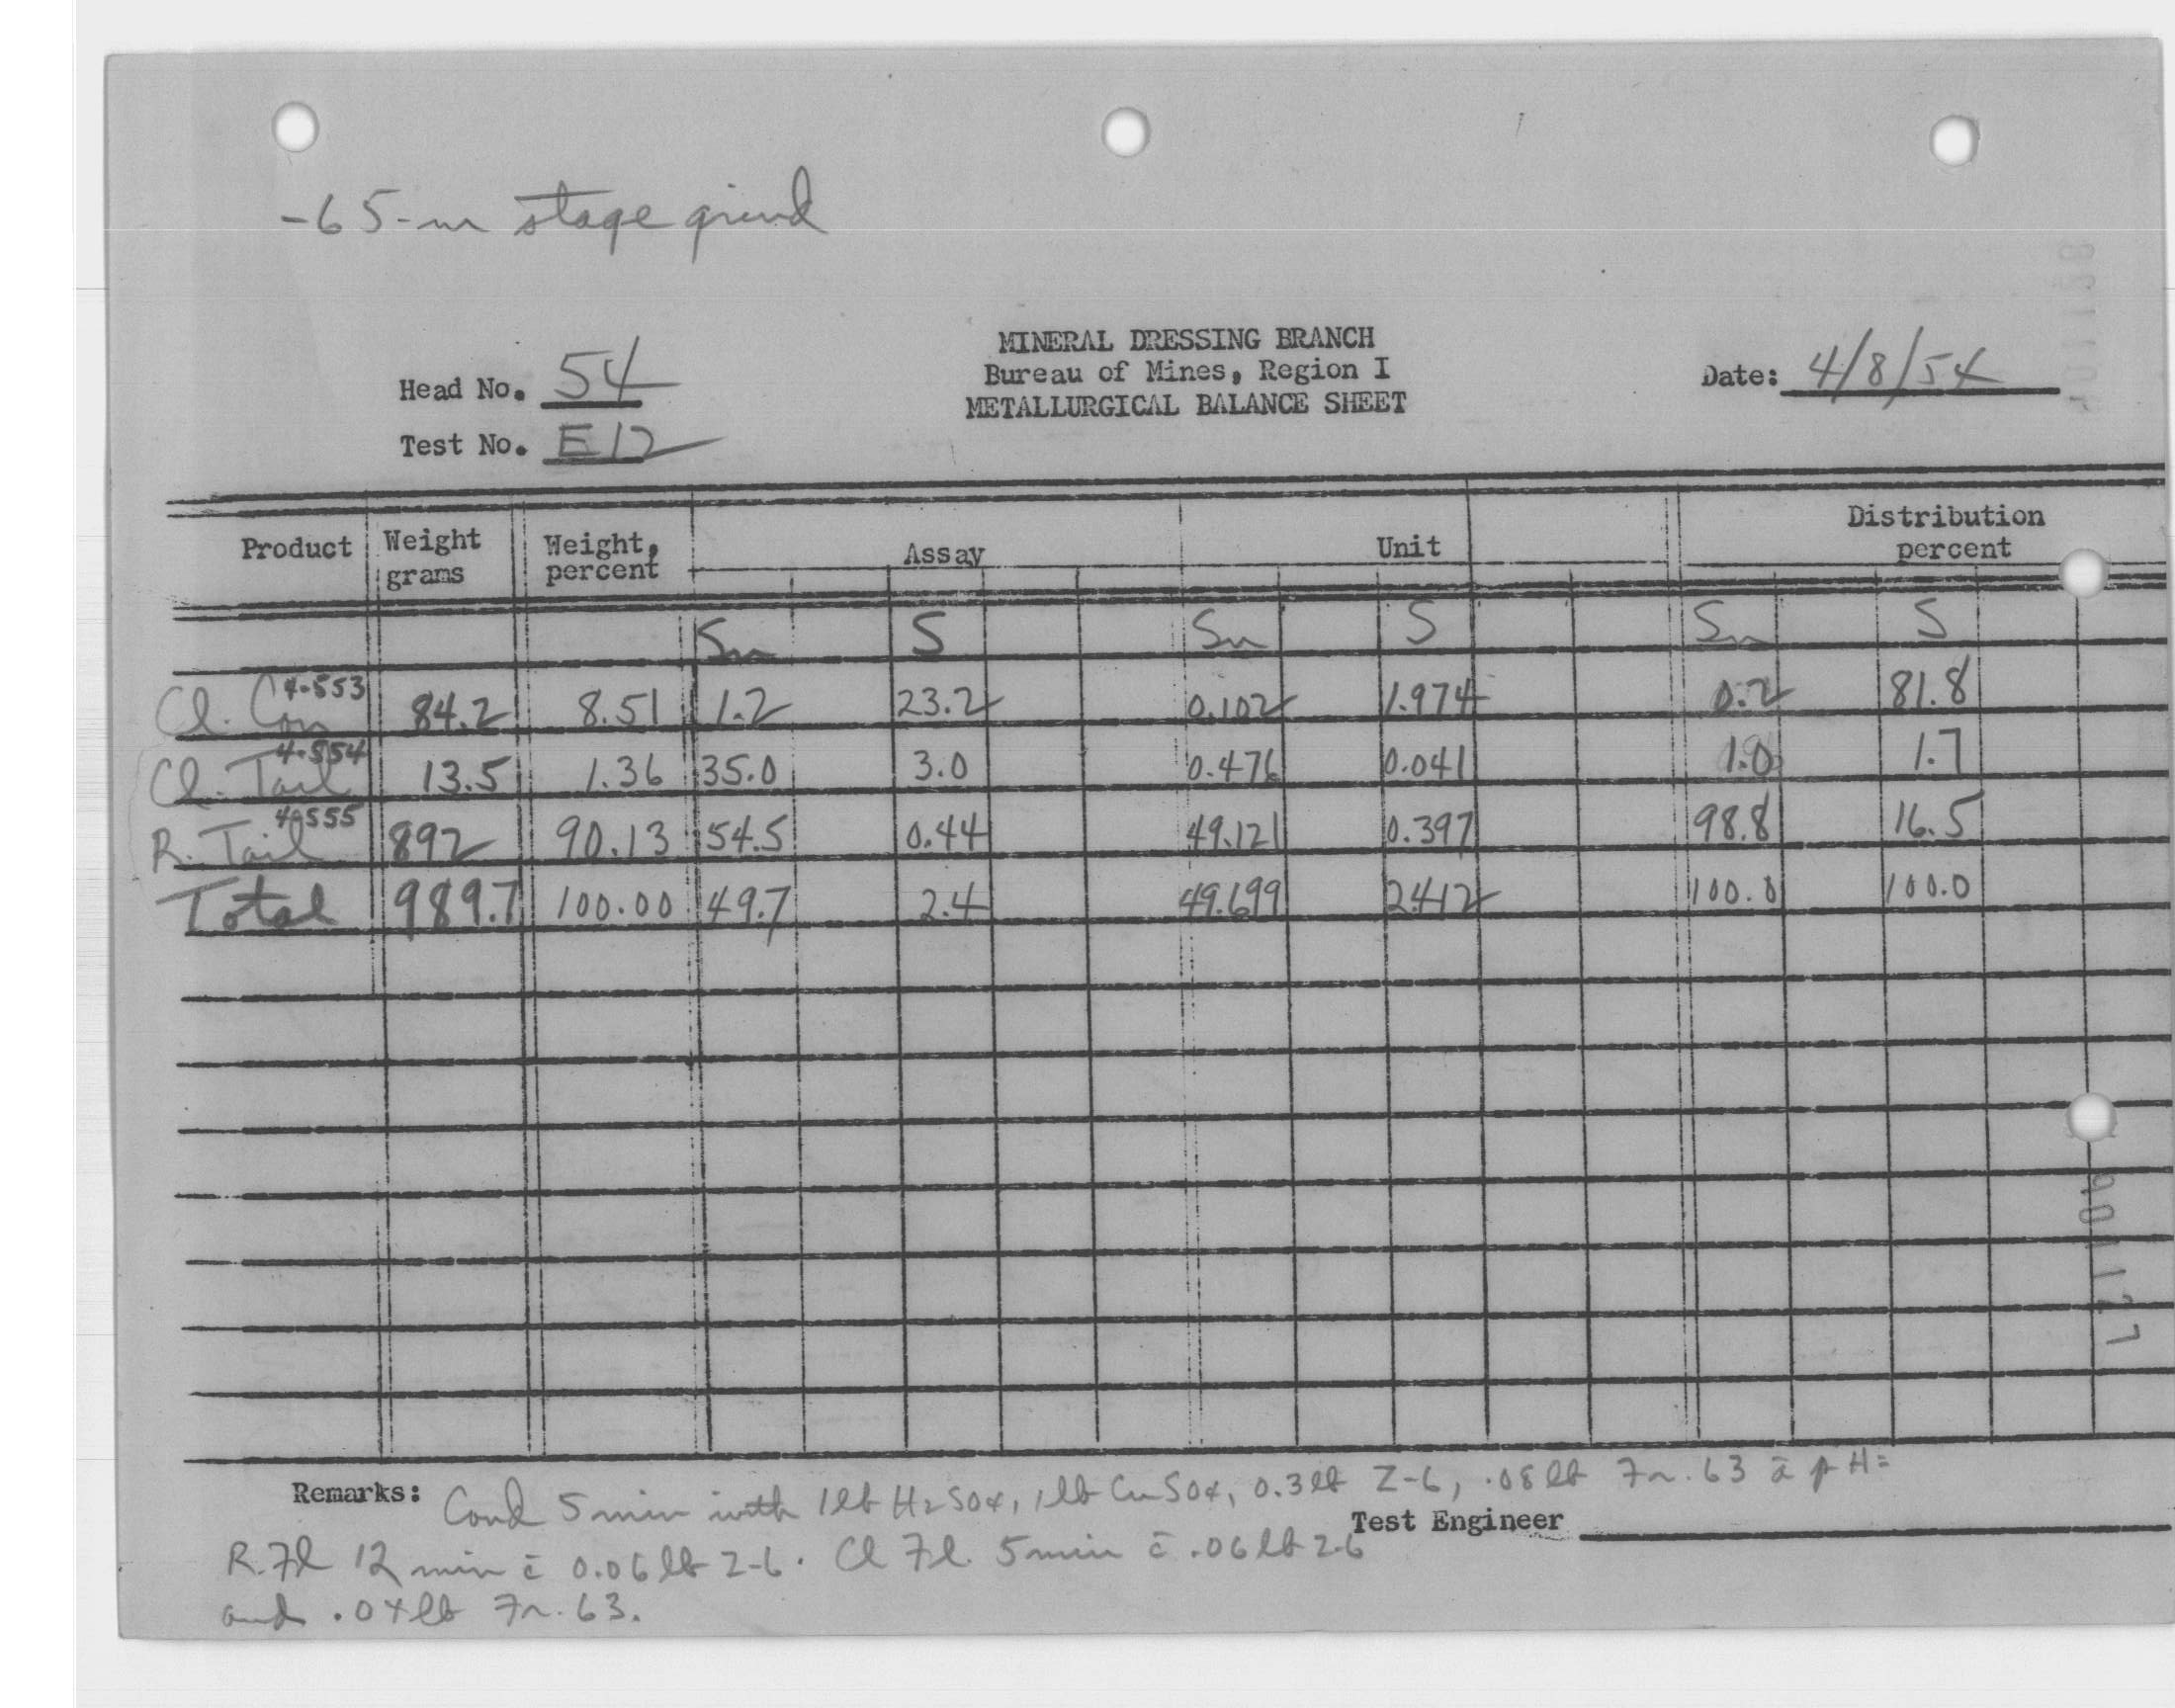 -65-m stage grind
MINERAL DRESSING BRANCH
Bureau of Mines, Region I
METALLURGICAL BALANCE SHEET
Head No. 54
Date: 4/8/54
Test No. E12
Product Weight grams Weight, percent Assay Unit Distribution percent
Sn S Sn S Sn S
Cl. Con 4-553 84.2 8.51 1.2 23.2 0.102 1.974 0.2 81.8
Cl. Tail 4-554 13.5 1.36 35.0 3.0 0.476 0.041 1.0 1.7
R. Tail 4-555 892 90.13 54.5 0.44 49.121 0.397 98.8 16.5
Total 989.7 100.00 49.7 2.4 49.699 2.412 100.0 100.0
Remarks: Cond 5 min with 1 lb H2SO4, 1 lb CuSO4, 0.3 lb Z-6, .08 lb Fr. 63 @ pH=
Test Engineer
R. Fl 12 min c̄ 0.06 lb Z-6. Cl Fl. 5 min c̄ .06 lb Z-6
and .04 lb Fr. 63.